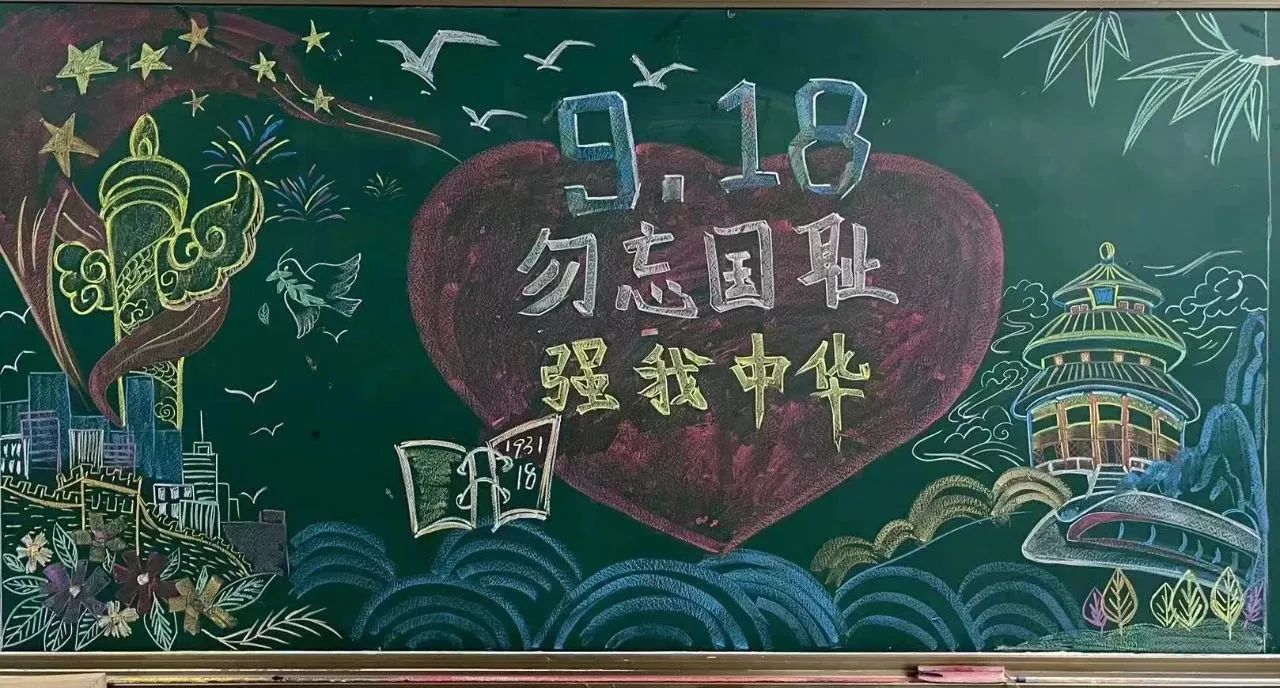 9.18
勿忘国耻
强我中华
1931
18